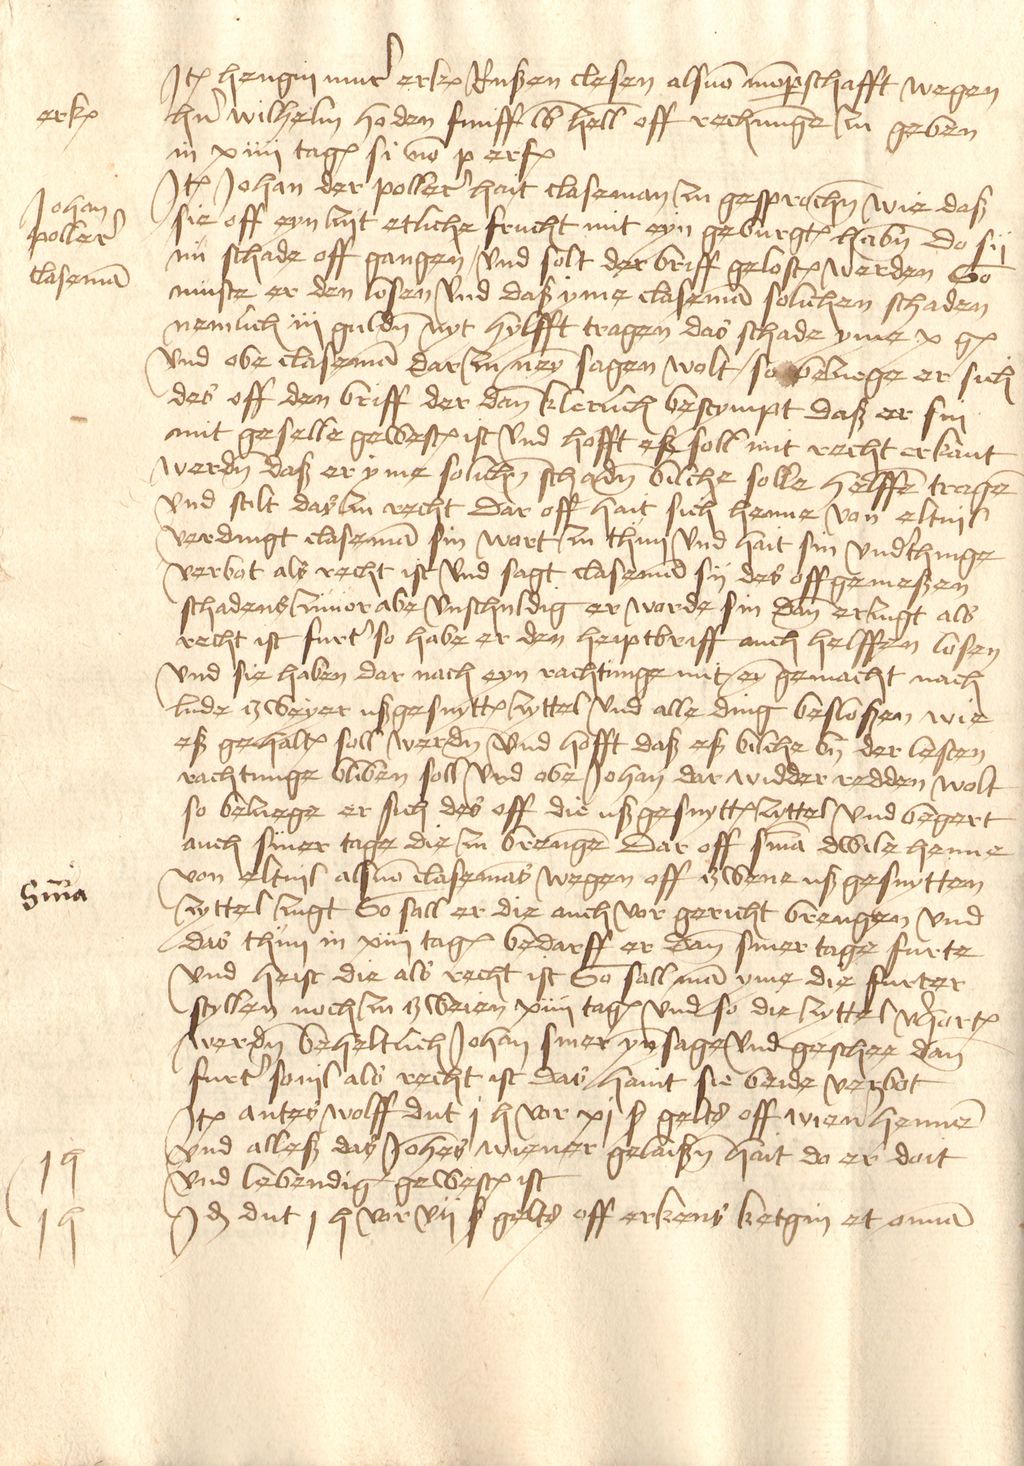 Jt(em) hengin mur(er) erk(ennt) Rußen clesen als vo(n) mo(m)p(ar)schafft wegen
erk(ennt)
h(er)n wilhelm hoden funff lb hell(er) off rechnu(n)ge zu geben
in xiiii tag(en) si no(n) p(fand) erf(olgt)
Jt(em) Johan der poller hait claseman zu gesproche(n) wie daß
Johan
poller
clasema(n)
sie off eyn zyt etliche frucht mit eyn geburgt habn Do sy
nu schade off gangen Und solt der briff gelost werden So
muste er den losen Und daß yme clasema(n) solichen schaden
nemlich iii guld(e)n nyt hylfft tragen das schade yme x g(u)l(den)
Und obe clasema(n) dar zu ney(n) sagen wolt / so beziege er sich
des off den briff der dan klerlich bestympt daß er sin
mit geselle gewest ist Und hofft eß soll mit recht erkant
werd(e)n daß er yme solich(e)n schad(e)n bilche solle helffe(n) trage(n)
Und stilt das zu recht Dar off hait sich henne von eltuil
verdingt clasema(n) sin wort zu thun Und hait sin und(er)thinge
verbot als recht ist Und sagt clasema(n) sy des offgemeßen
schadens zuuor abe Unschuldig er worde sin dan erzugt als
recht ist furt(er) so habe er den heiptbriff auch helffen losen
Und sie haben dar nach eyn rachtunge mit ey(n) gemacht nach
lude zweyer ußgesnytt(en) zyttel Und alle ding besloßen wie
eß gehalt(en) soll werd(e)n Und hofft daß eß bilche by der lesten
rachtunge bliben soll Und obe Johan dar widder redden wolt
so beziege er sich des off die ußgesnytt(en) zyttel Und begert
auch siner tage die zu brenge(n) Dar off s(e)n(tent)ia dwile henne
S(e)n(tent)ia
von eltuil als vo(n) clasema(n)s wegen off zwene ußgesnytten
zyttel zugt So sall er die auch vor gericht brengen Und
das thun in xiiii tag(en) bedarff er dan siner tage furte
Und heist die als recht ist So sall ma(n) yme die furter
styllen noch zu zweien xiiii tag(en) Und so die zyttel v(er)hort
werd(e)n beheltlich Johan siner ynsage Und geschee dan
furt(er) souil als recht ist das haint sie beide verbot
Jt(em) antes wolff dut i h(eischung) vor xi ß gelts off wien henne(n)
Und alleß das Joh(ann)es wiener gelaiß(e)n hait do er doit
1 h
Und lebendig gewest ist
1 h
Jd(em) dut i h(eischung) vor vii ß gelts off erkens ketgin et o(mn)ia